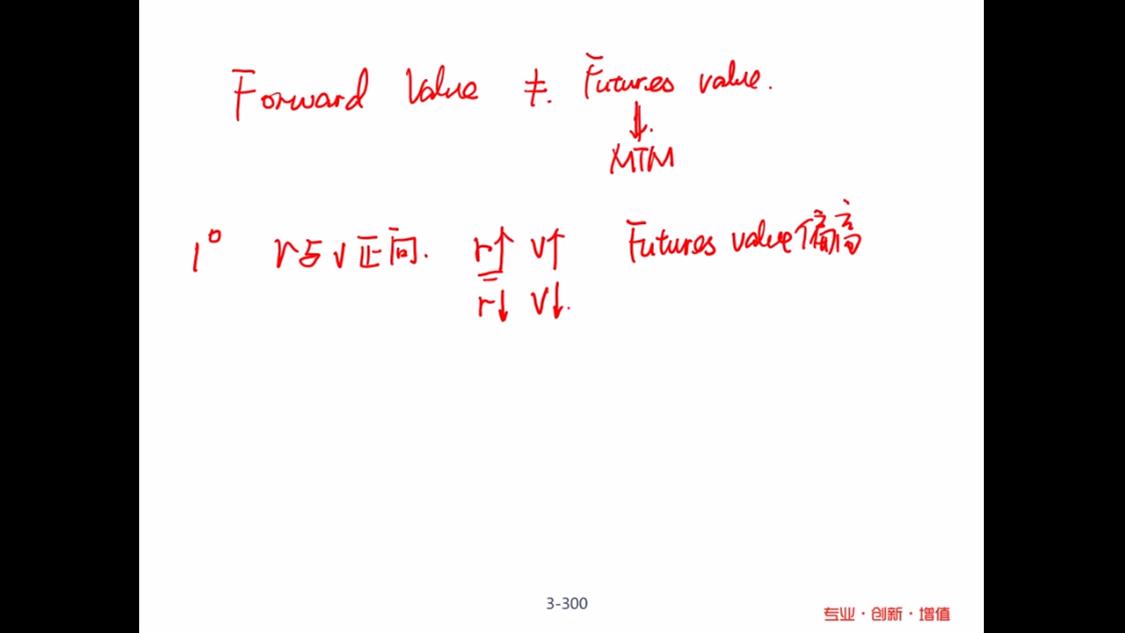 Forward Value ≠. Futures value.
⇓.
MTM
1° r与v正向. r↑ V↑ Futures value偏高
r↓ V↓.
3-300
专业·创新·增值